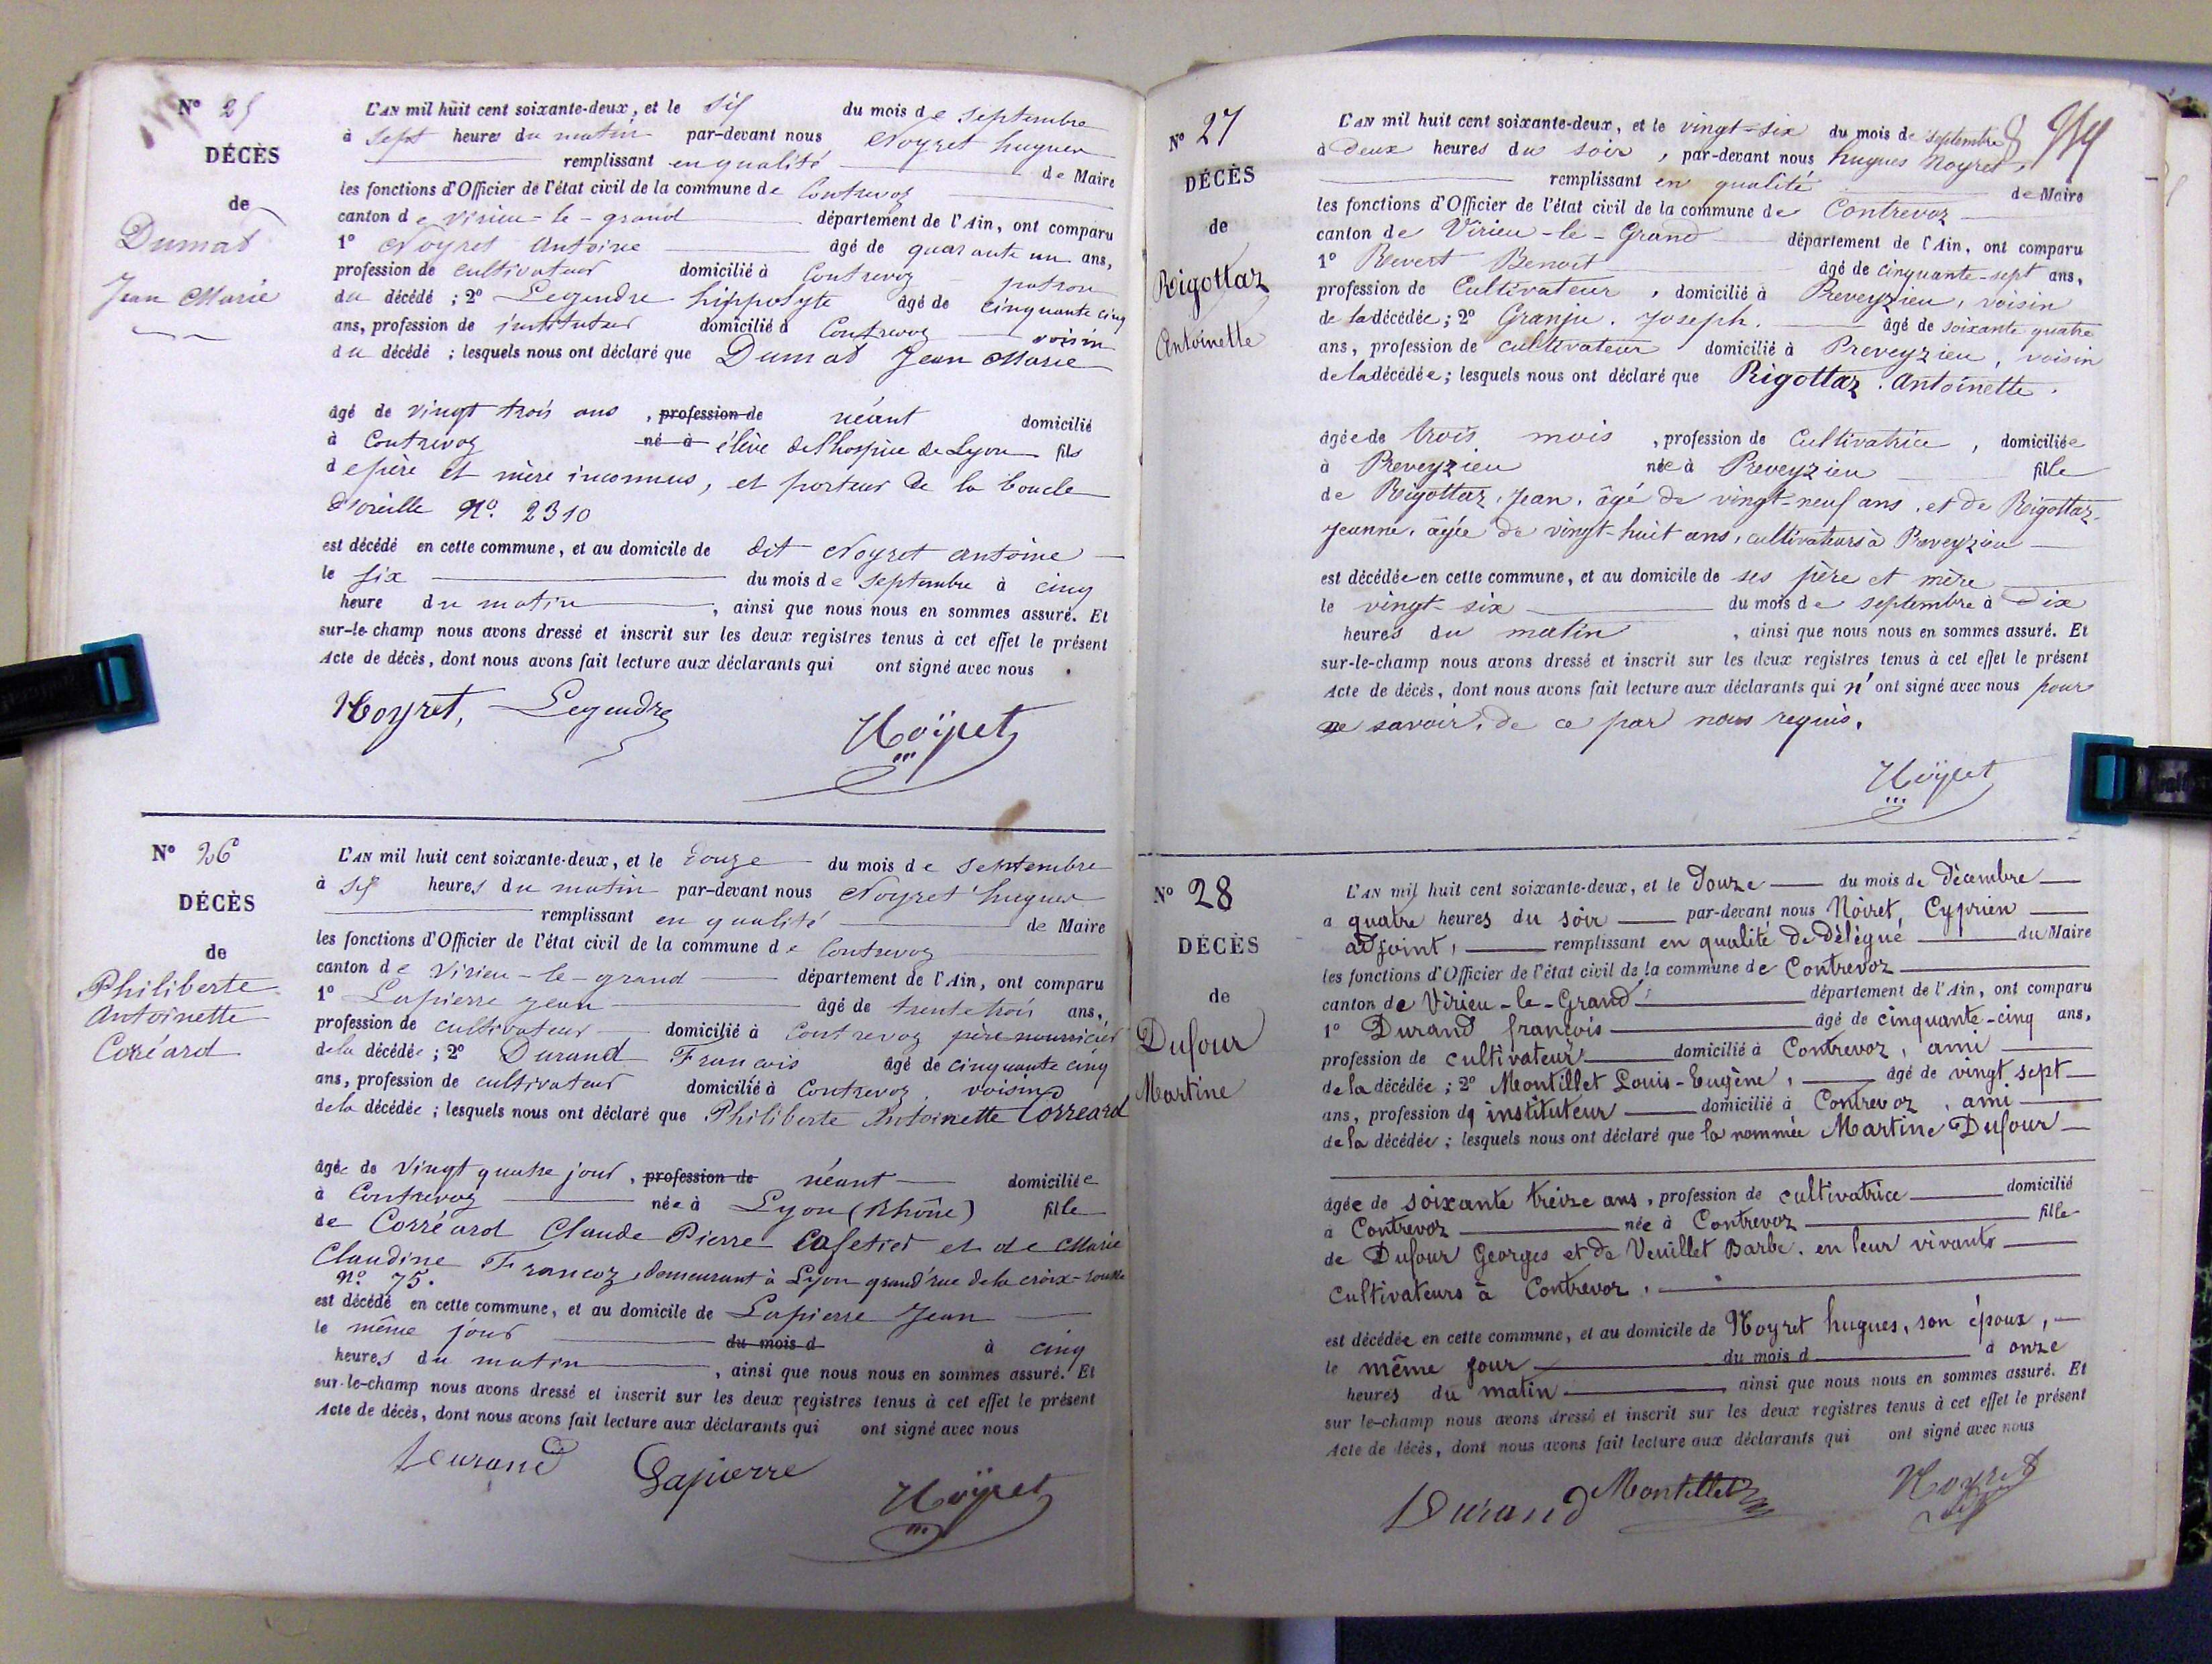 N° 25
DÉCÈS
de
Dumas
Jean Marie
L'AN mil huit cent soixante-deux, et le six du mois de septembre
à sept heures du matin par-devant nous Noyret hugues
remplissant en qualité de Maire
les fonctions d'Officier de l'état civil de la commune de Contrevoz
canton de Virieu-le-grand département de l'Ain, ont comparu
1° Noyret Antoine âgé de quarante un ans,
profession de cultivateur domicilié à Contrevoz patron
du décédé ; 2° Legendre hippolyte âgé de cinquante cinq
ans, profession de instituteur domicilié à Contrevoz voisin
du décédé ; lesquels nous ont déclaré que Dumas Jean Marie
âgé de vingt trois ans, profession de néant domicilié
à Contrevoz né à élève de l'hospice de Lyon fils
de père et mère inconnus, et porteur de la boucle
d'oreille N°. 2310
est décédé en cette commune, et au domicile de dit Noyret antoine
le six du mois de septembre à cinq
heure du matin, ainsi que nous nous en sommes assuré. Et
sur-le-champ nous avons dressé et inscrit sur les deux registres tenus à cet effet le présent
Acte de décès, dont nous avons fait lecture aux déclarants qui ont signé avec nous
Noyret, Legendre
Noÿret
N° 26
DÉCÈS
de
Philiberte
Antoinette
Coréard
L'AN mil huit cent soixante-deux, et le douze du mois de septembre
à six heures du matin par-devant nous Noyret hugues
remplissant en qualité de Maire
les fonctions d'Officier de l'état civil de la commune de Contrevoz
canton de Virieu-le-grand département de l'Ain, ont comparu
1° Lapierre Jean âgé de trente trois ans,
profession de cultivateur domicilié à Contrevoz père nourricier
de la décédée ; 2° Durand François âgé de cinquante cinq
ans, profession de cultivateur domicilié à Contrevoz, voisins
de la décédée ; lesquels nous ont déclaré que Philiberte Antoinette Corréard
âgée de vingt quatre jours, profession de néant domiciliée
à Contrevoz née à Lyon (Rhône) fille
de Corréard Claude Pierre Cafetier et de Marie
Claudine Francoz, demeurant à Lyon grand'rue de la croix-rousse
N°. 75.
est décédé en cette commune, et au domicile de Lapierre Jean
le même jour du mois d à cinq
heures du matin, ainsi que nous nous en sommes assuré. Et
sur-le-champ nous avons dressé et inscrit sur les deux registres tenus à cet effet le présent
Acte de décès, dont nous avons fait lecture aux déclarants qui ont signé avec nous
Durand Lapierre
Noÿret
N° 27
DÉCÈS
de
Rigottaz
Antoinette
L'AN mil huit cent soixante-deux, et le vingt-six du mois de septembre
à deux heures du soir, par-devant nous hugues Noyret,
remplissant en qualité de Maire
les fonctions d'Officier de l'état civil de la commune de Contrevoz
canton de Virieu-le-Grand département de l'Ain, ont comparu
1° Revert Benoit âgé de cinquante-sept ans,
profession de Cultivateur, domicilié à Preveyzieu, voisin
de la décédée ; 2° Granju. Joseph. âgé de soixante quatre
ans, profession de cultivateur domicilié à Preveyzieu, voisin
de la décédée ; lesquels nous ont déclaré que Rigottaz. Antoinette.
âgée de trois mois, profession de Cultivatrice, domiciliée
à Preveyzieu née à Preveyzieu fille
de Rigottaz, Jean, âgé de vingt-neuf ans, et de Rigottaz
Jeanne, âgée de vingt-huit ans, cultivateurs à Preveyzieu
est décédée en cette commune, et au domicile de ses père et mère
le vingt-six du mois de septembre à Dix
heures du matin, ainsi que nous nous en sommes assuré. Et
sur-le-champ nous avons dressé et inscrit sur les deux registres tenus à cet effet le présent
Acte de décès, dont nous avons fait lecture aux déclarants qui n'ont signé avec nous pour
ne savoir, de ce par nous requis.
Noÿret
N° 28
DÉCÈS
de
Dufour
Martine
L'AN mil huit cent soixante-deux, et le Douze du mois de Décembre
à quatre heures du soir par-devant nous Noiret, Cyprien
adjoint, remplissant en qualité de Délégué du Maire
les fonctions d'Officier de l'état civil de la commune de Contrevoz
canton de Virieu-le-Grand département de l'Ain, ont comparu
1° Durand françois âgé de cinquante-cinq ans,
profession de cultivateur domicilié à Contrevoz, ami
de la décédée ; 2° Montillet Louis-Eugène, âgé de vingt sept
ans, profession d'instituteur domicilié à Contrevoz, ami
de la décédée ; lesquels nous ont déclaré que la nommée Martine Dufour
âgée de soixante treize ans, profession de cultivatrice domicilié
à Contrevoz née à Contrevoz fille
de Dufour Georges et de Veuillet Barbe, en leur vivants
cultivateurs à Contrevoz.
est décédée en cette commune, et au domicile de Noyret hugues, son époux,
le même jour du mois d à onze
heures du matin ainsi que nous nous en sommes assuré. Et
sur le-champ nous avons dressé et inscrit sur les deux registres tenus à cet effet le présent
Acte de décès, dont nous avons fait lecture aux déclarants qui ont signé avec nous
Durand Montillet Noyret